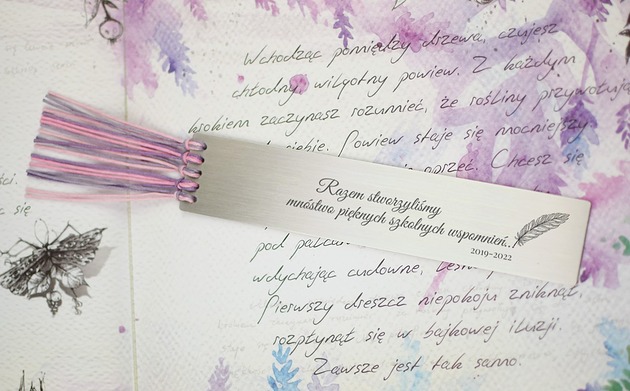 Wchodząc pomiędzy drzewa, czujesz
chłodny, wilgotny powiew. Z każdym
krokiem zaczynasz rozumieć, że rośliny przywołują
siebie. Powiew staje się mocniejszy
oprzeć. Chcesz się
Razem stworzyliśmy
mnóstwo pięknych szkolnych wspomnień...
2019-2022
pod
wdychając cudowne,
Pierwszy dreszcz niepokoju zniknął,
rozpłynął się w bajkowej iluzji.
Zawsze jest tak samo.
się